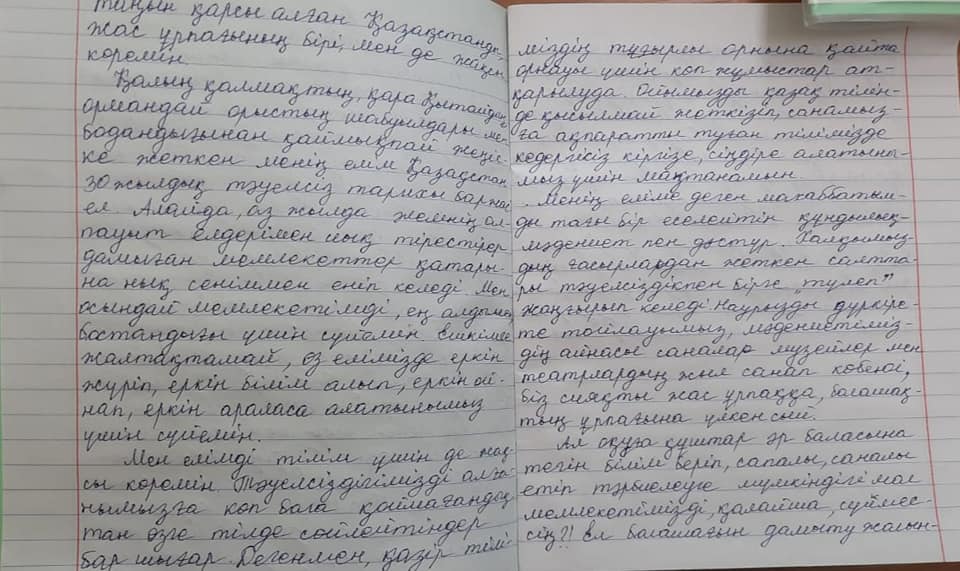 таңын қарсы алған Қазақстанды,
жас ұрпағының бірі, мен де жақсы
көремін.
Қалың қалмақтың, қара қытайдың,
ормандай орыстың шабуылдары мен
бодандығынан қаймықпай жеңіс-
ке жеткен менің елім Қазақстан
30 жылдық тәуелсіз тарихы бар жас
ел. Алайда, аз жылда әлемнің ал-
пауыт елдерімен иық тірестірер
дамыған мемлекеттер қатары-
на нық сеніммен еніп келеді. Мен
осындай мемлекетімді, ең алдымен
бостандығы үшін сүйемін. Ешкімге
жалтақтамай, өз елімізде еркін
жүріп, еркін білім алып, еркін ой-
нап, еркін араласа алатынымыз
үшін сүйемін.
Мен елімді тілім үшін де жақ-
сы көремін. Тәуелсіздігімізді алға-
нымызға көп баға қоймағандық-
тан өзге тілде сөйлейтіндер
бар шығар. Дегенмен, қазір тілі-
міздің тұғырлы орнына қайта
орнауы үшін көп жұмыстар ат-
қарылуда. Ойымызды қазақ тілін-
де қысылмай жеткізіп, санамыз-
ға ақпаратты туған тілімізде
кедергісіз кіргізе, сіңдіре алатыны-
мыз үшін мақтанамын.
Менің еліме деген махаббатым-
ды тағы бір еселейтін құндылық-
мәдениет пен дәстүр. Халқымыз-
дың ғасырлардан жеткен салтта-
ры тәуелсіздікпен бірге "түлеп"
жаңғырып келеді. Наурызды дүркіре-
те тойлауымыз, мәдениетіміз-
дің айнасы саналар музейлер мен
театрлардың жыл санап көбеюі,
біз сияқты жас ұрпаққа, болашақ-
тың ұрпағына үлкен сый.
Ал оқуға құштар әр баласына
тегін білім беріп, сапалы, саналы
етіп тәрбиелеуге мүмкіндігі мол
мемлекетімізді, қалайша, сүймес-
сің?! Ел болашағын дамыту жалын-